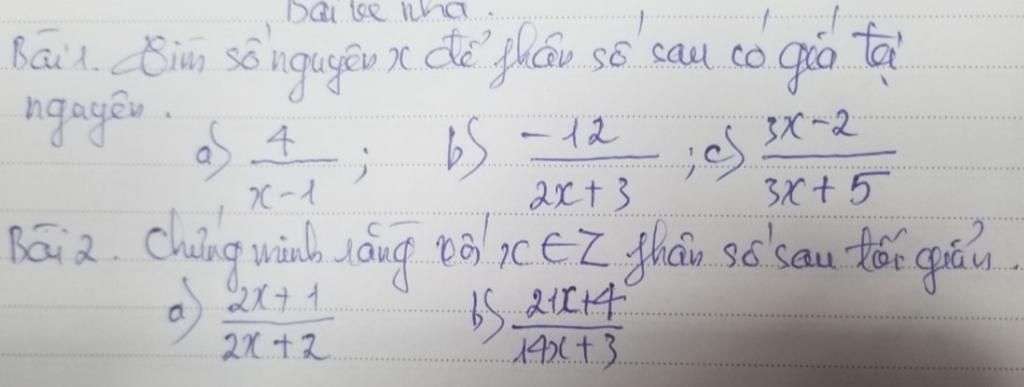 Bài về nhà.
Bài 1. Tìm số nguyên x để phân số sau có giá trị
nguyên.
a) 4/(x-1); b) -12/(2x+3); c) (3x-2)/(3x+5)
Bài 2. Chứng minh rằng với x∈Z phân số sau tối giản.
a) (2x+1)/(2x+2) b) (21x+4)/(14x+3)